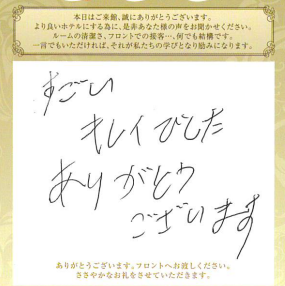 本日はご来館、誠にありがとうございます。
より良いホテルにする為に、是非あなた様の声をお聞かせください。
ルームの清潔さ、フロントでの接客…、何でも結構です。
一言でもいただければ、それが私たちの学びとなり励みになります。
すごい
キレイでした
ありがとう
ございます
ありがとうございます。フロントへお渡しください。
ささやかなお礼をさせていただきます。